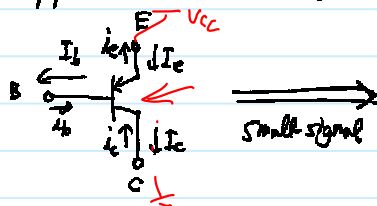 E Vcc
I_b i_e I_e
B
i_b i_c I_c
C
small-signal